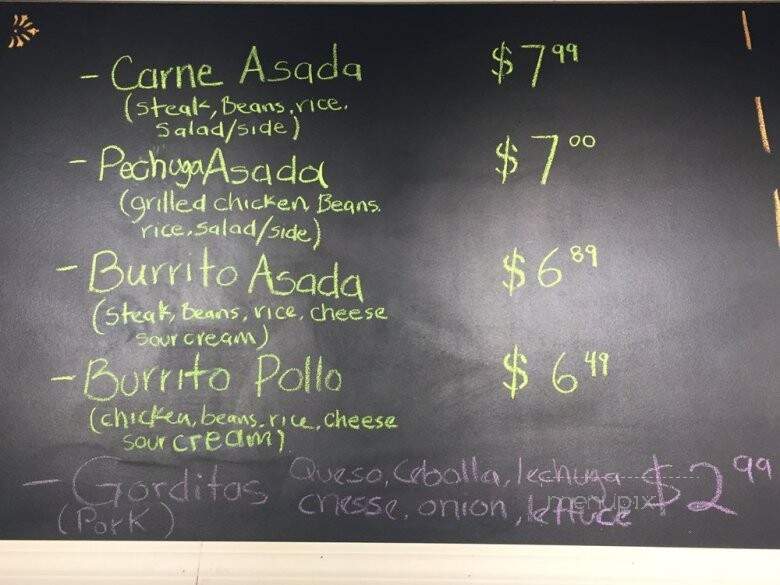 - Carne Asada $7.99
(steak, Beans, rice.
salad/side)
- Pechuga Asada $7.00
(grilled chicken, Beans.
rice, salad/side)
- Burrito Asada $6.89
(steak, beans, rice, cheese
sour cream)
- Burrito Pollo $6.49
(chicken, beans, rice, cheese
sour cream)
- Gorditas Queso, Cebolla, lechuga $2.99
(Pork) chesse, onion, lettuce
menupix